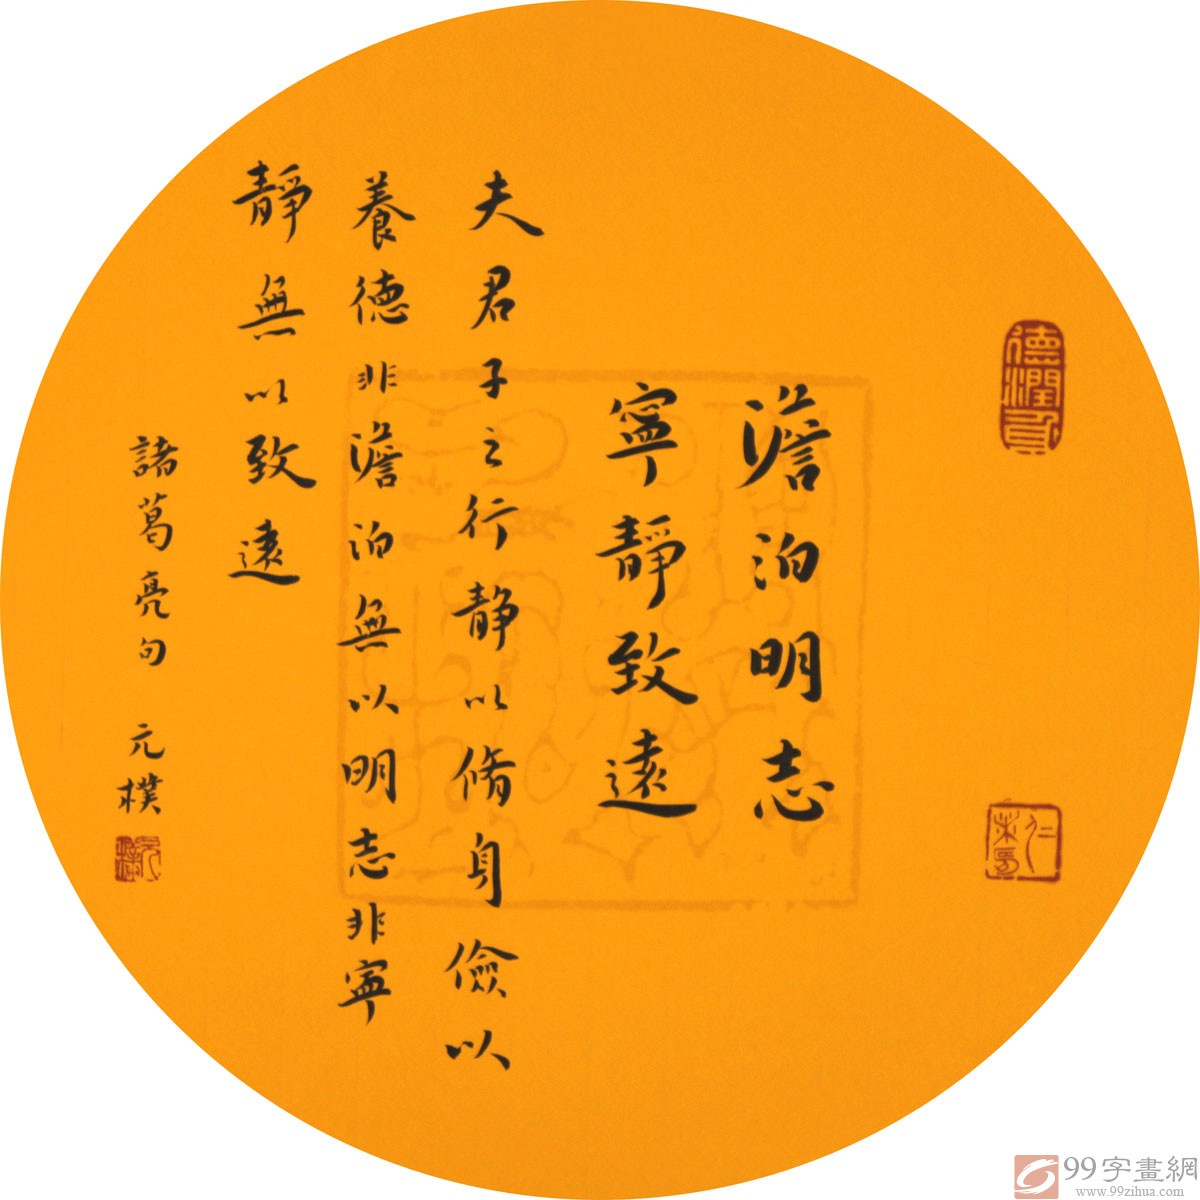 澹泊明志
寧靜致遠
夫君子之行静以脩身儉以
養德非澹泊無以明志非寧
靜無以致遠
諸葛亮句 元樸
德潤身
元樸
99字畫網
www.99zihua.com